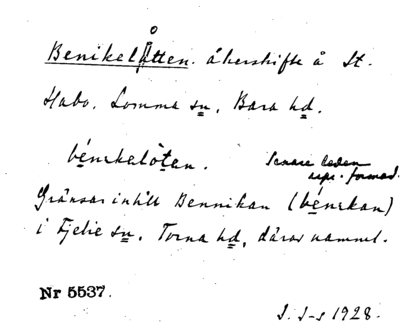 Benikelåtten. åkerskifte å St.
Habo. Lomma sn, Bara hd.
bénikelötan. Senare leden
repr. formad.
Gränsar intill Bennikan (bénikan)
i Fjelie sn, Torna hd, därav namnet.
Nr 5537.
1928.